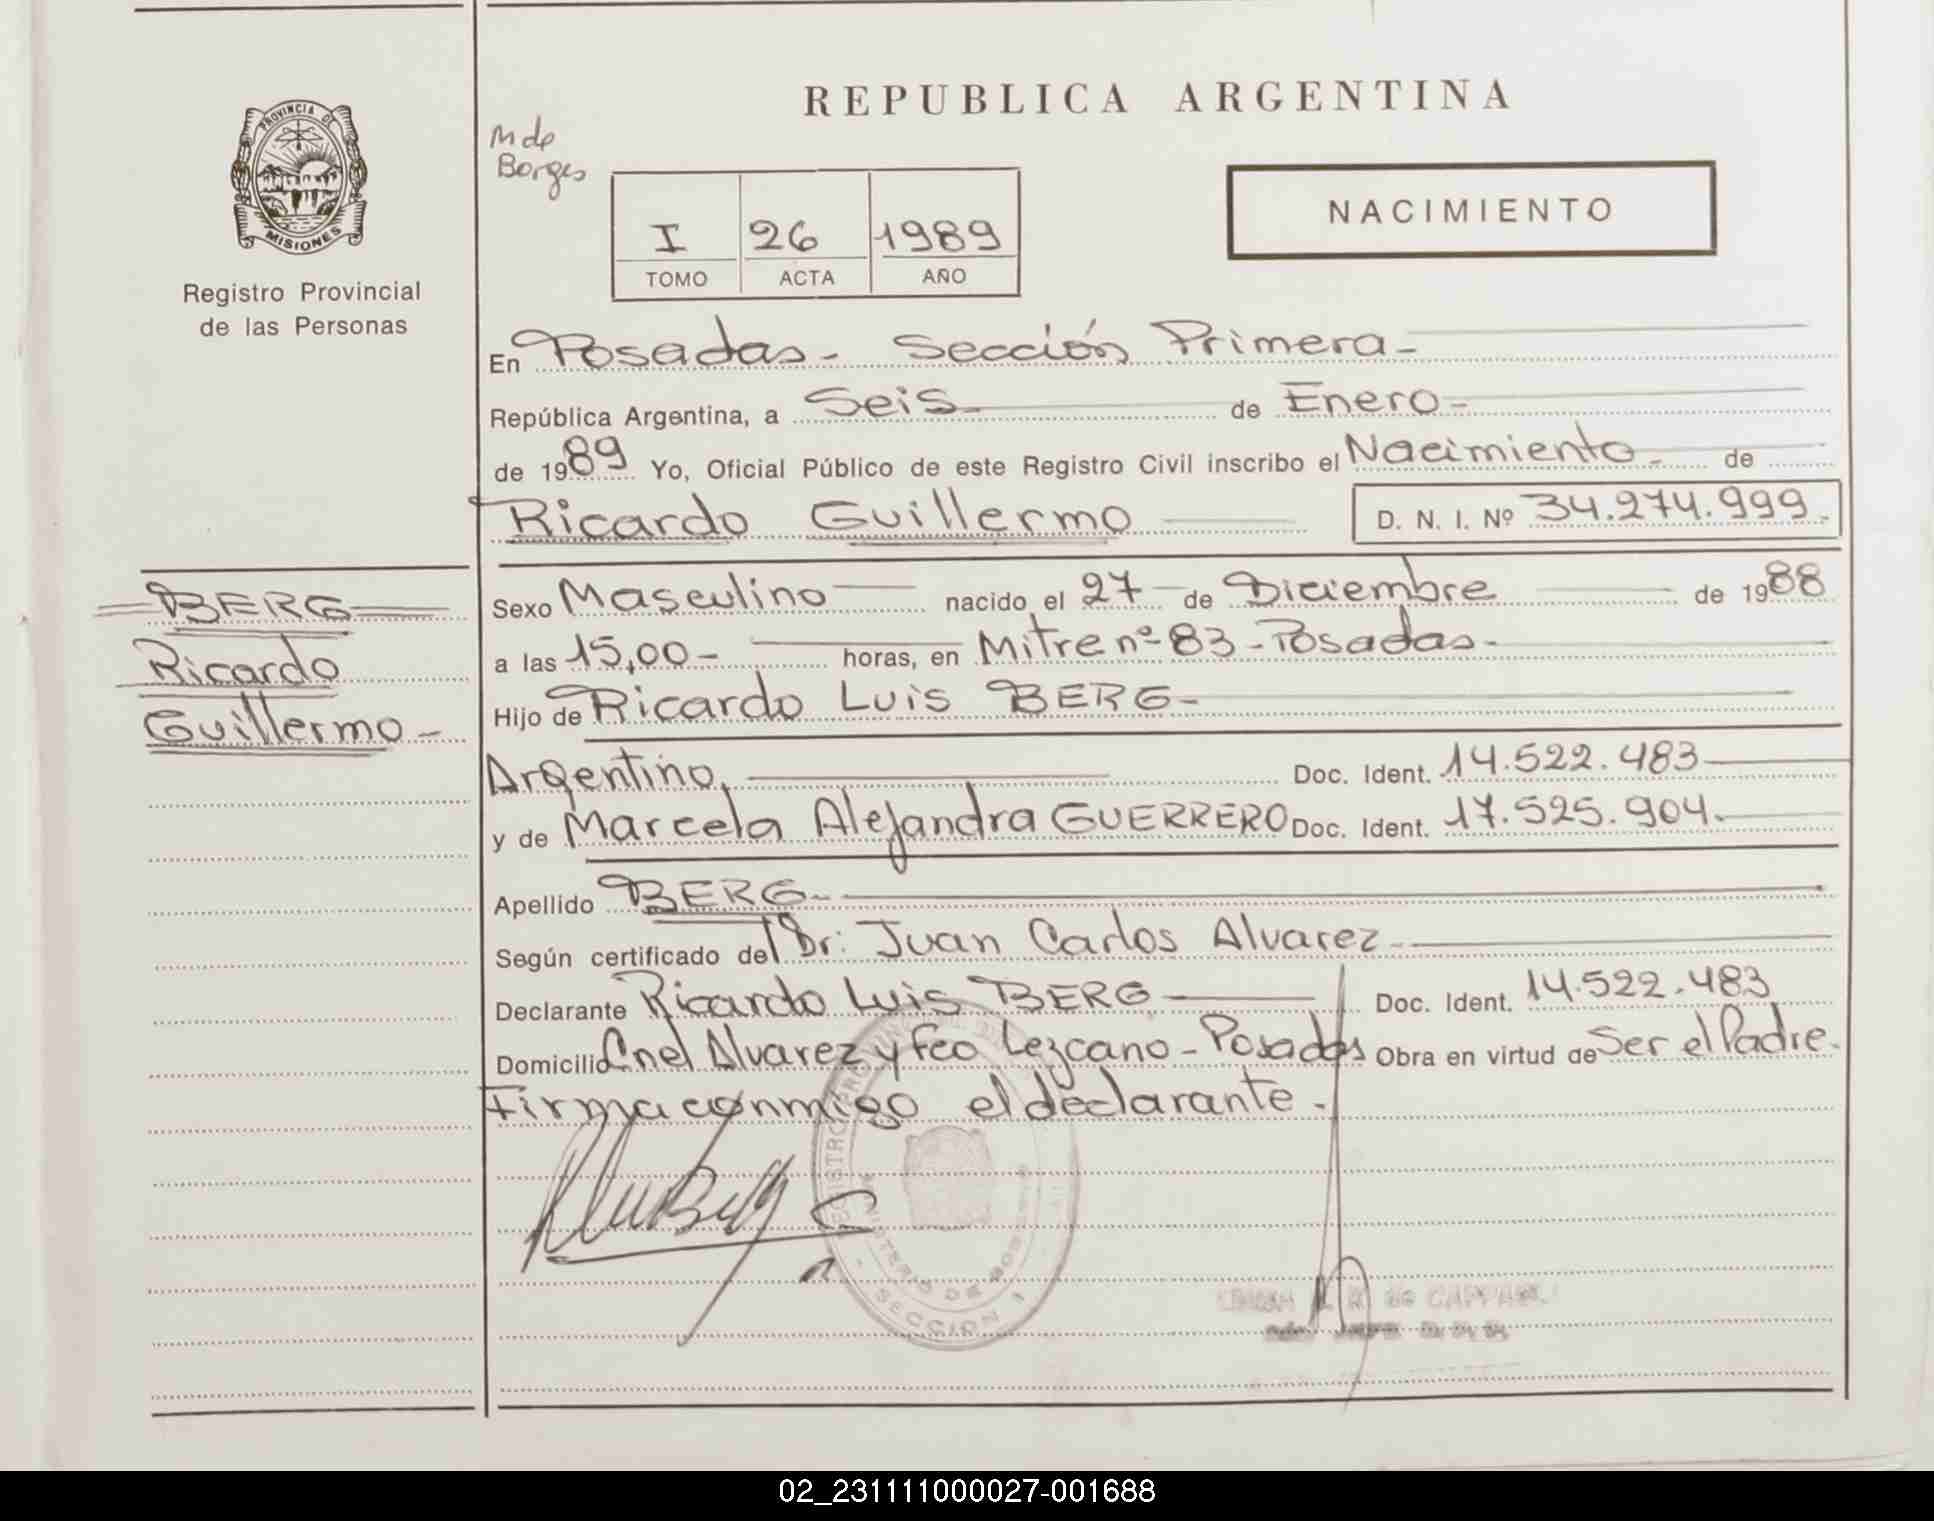 REPUBLICA ARGENTINA
PROVINCIA DE
MISIONES
Registro Provincial
de las Personas
M de
Borges
I 26 1989
TOMO ACTA AÑO
NACIMIENTO
En Posadas - Sección Primera -
República Argentina, a Seis de Enero -
de 1989 Yo, Oficial Público de este Registro Civil inscribo el Nacimiento - de
Ricardo Guillermo D. N. I. Nº 34.274.999.
BERG
Ricardo
Guillermo -
Sexo Masculino nacido el 27 de Diciembre de 1988
a las 15,00 - horas, en Mitre nº 83 - Posadas -
Hijo de Ricardo Luis BERG -
Argentino, Doc. Ident. 14.522.483
y de Marcela Alejandra GUERRERO Doc. Ident. 17.525.904.
Apellido BERG -
Según certificado del Dr: Juan Carlos Alvarez -
Declarante Ricardo Luis BERG Doc. Ident. 14.522.483
Domicilio Cnel Alvarez y Fco Lezcano - Posadas Obra en virtud de Ser el Padre.
Firma conmigo el declarante.
SECCION 1
02_231111000027-001688